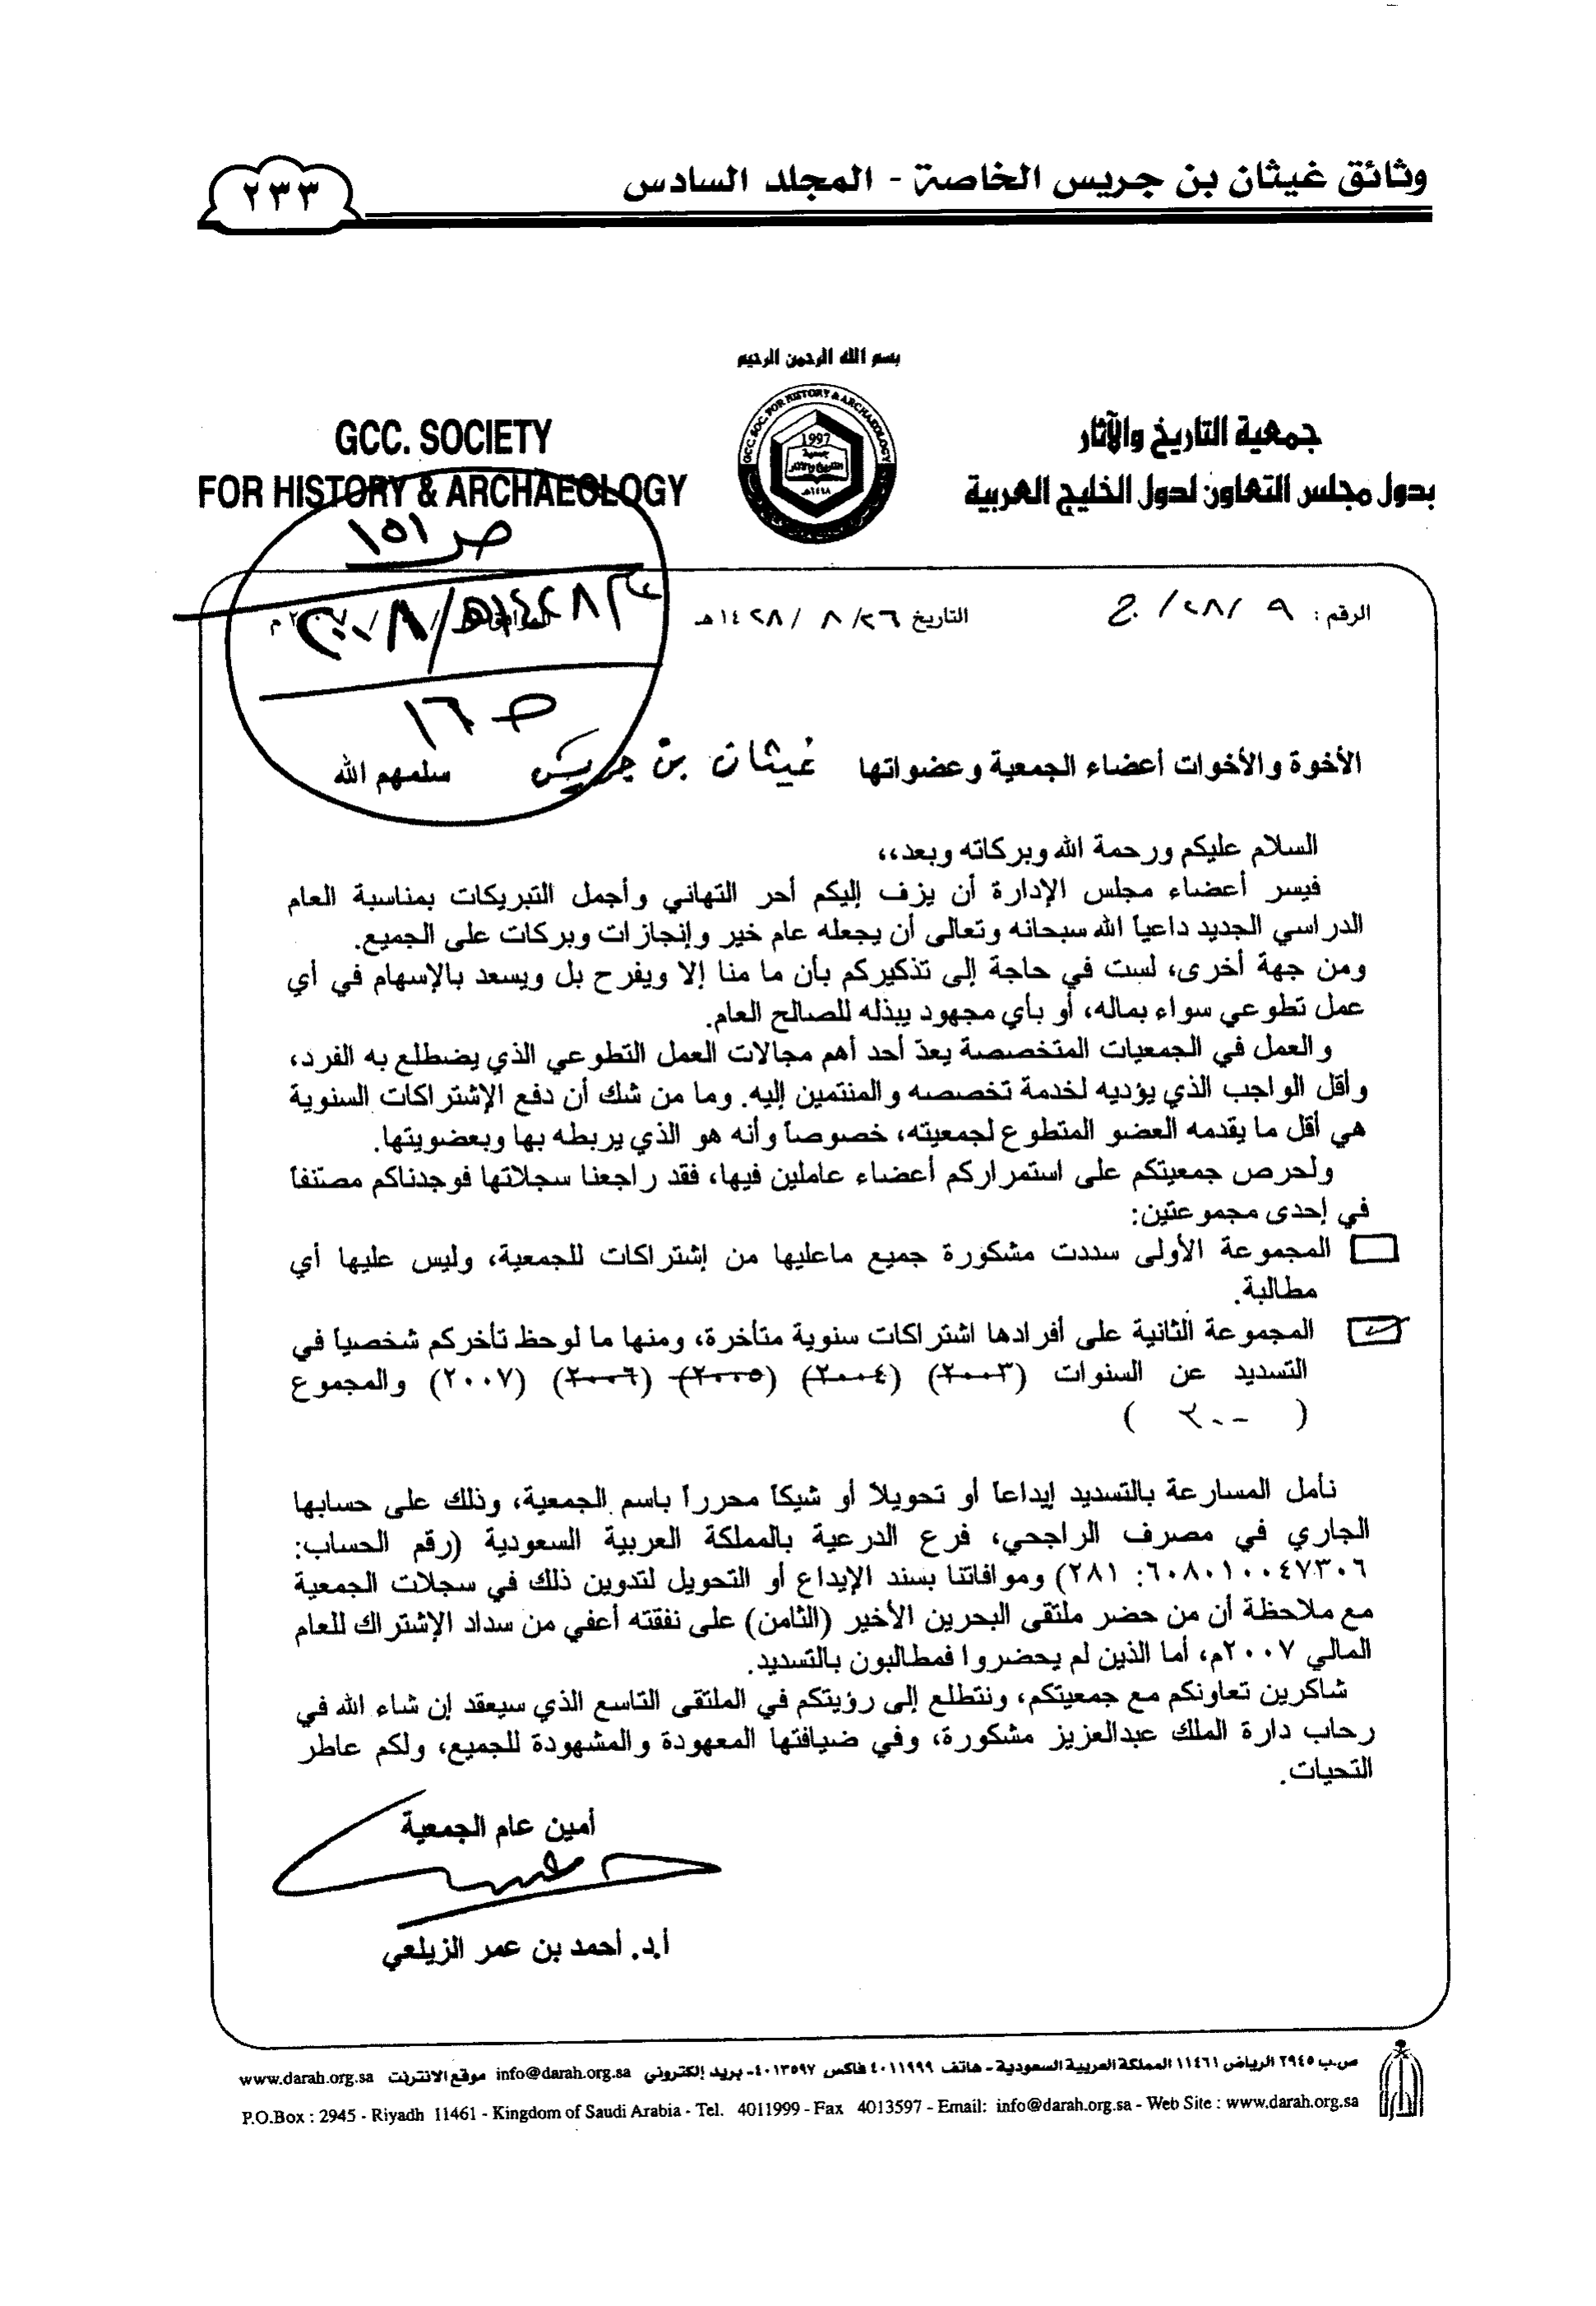 وثائق غيثان بن جريس الخاصة - المجلد السادس
٢٣٣
بسم الله الرحمن الرحيم
جمعية التاريخ والآثار
بدول مجلس التعاون لدول الخليج العربية
GCC. SOCIETY
FOR HISTORY & ARCHAEOLOGY
GCC. SOC. FOR HISTORY & ARCHAEOLOGY
1997
جمعية
التاريخ والآثار
١٤١٨هـ
ص ١٥١
الرقم : ٩ /٢٨/ ج
التاريخ ٢٦/ ٨ /١٤٢٨هـ
ص ١٦
الأخوة والأخوات أعضاء الجمعية وعضواتها غيثان بن جريس سلمهم الله
السلام عليكم ورحمة الله وبركاته وبعد،،
فيسر أعضاء مجلس الإدارة أن يزف إليكم أحر التهاني وأجمل التبريكات بمناسبة العام
الدراسي الجديد داعياً الله سبحانه وتعالى أن يجعله عام خير وإنجازات وبركات على الجميع.
ومن جهة أخرى، لست في حاجة إلى تذكيركم بأن ما منا إلا ويفرح بل ويسعد بالإسهام في أي
عمل تطوعي سواء بماله، أو بأي مجهود يبذله للصالح العام.
والعمل في الجمعيات المتخصصة يعدّ أحد أهم مجالات العمل التطوعي الذي يضطلع به الفرد،
وأقل الواجب الذي يؤديه لخدمة تخصصه والمنتمين إليه. وما من شك أن دفع الإشتراكات السنوية
هي أقل ما يقدمه العضو المتطوع لجمعيته، خصوصاً وأنه هو الذي يربطه بها وبعضويتها.
ولحرص جمعيتكم على استمراركم أعضاء عاملين فيها، فقد راجعنا سجلاتها فوجدناكم مصنفاً
في إحدى مجموعتين:
المجموعة الأولى سددت مشكورة جميع ماعليها من إشتراكات للجمعية، وليس عليها أي
مطالبة.
المجموعة الثانية على أفرادها اشتراكات سنوية متأخرة، ومنها ما لوحظ تأخركم شخصياً في
التسديد عن السنوات (٢٠٠٣) (٢٠٠٤) (٢٠٠٥) (٢٠٠٦) (٢٠٠٧) والمجموع
( ٢٠٠ - )
نأمل المسارعة بالتسديد إيداعاً أو تحويلاً أو شيكاً محرراً باسم الجمعية، وذلك على حسابها
الجاري في مصرف الراجحي، فرع الدرعية بالمملكة العربية السعودية (رقم الحساب:
٦٠٨٠١٠٠٤٧٣٠٦: ٢٨١) وموافاتنا بسند الإيداع أو التحويل لتدوين ذلك في سجلات الجمعية
مع ملاحظة أن من حضر ملتقى البحرين الأخير (الثامن) على نفقته أعفي من سداد الإشتراك للعام
المالي ٢٠٠٧م، أما الذين لم يحضروا فمطالبون بالتسديد.
شاكرين تعاونكم مع جمعيتكم، ونتطلع إلى رؤيتكم في الملتقى التاسع الذي سيعقد إن شاء الله في
رحاب دارة الملك عبدالعزيز مشكورة، وفي ضيافتها المعهودة والمشهودة للجميع، ولكم عاطر
التحيات.
أمين عام الجمعية
أ.د. أحمد بن عمر الزيلعي
ص.ب ٢٩٤٥ الرياض ١١٤٦١ المملكة العربية السعودية - هاتف ٤٠١١٩٩٩ فاكس ٤٠١٣٥٩٧- بريد إلكتروني info@darah.org.sa موقع الانترنت www.darah.org.sa
P.O.Box : 2945 - Riyadh 11461 - Kingdom of Saudi Arabia - Tel. 4011999 - Fax 4013597 - Email: info@darah.org.sa - Web Site : www.darah.org.sa